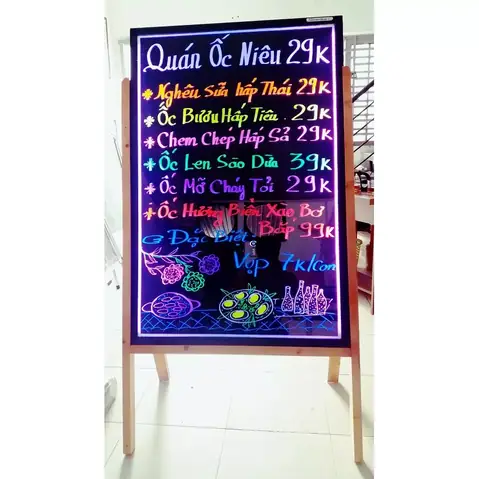 Quán Ốc Niêu 29K
Nghêu Sữa hấp Thái 29K
Ốc Bươu Hấp Tiêu 29K
Chem Chép Hấp Sả 29K
Ốc Len Sào Dừa 39K
Ốc Mỡ Cháy Tỏi 29K
Ốc Hương Biển Xào Bơ
Bắp 99K
Đặc Biệt
Vọp 7K/Con